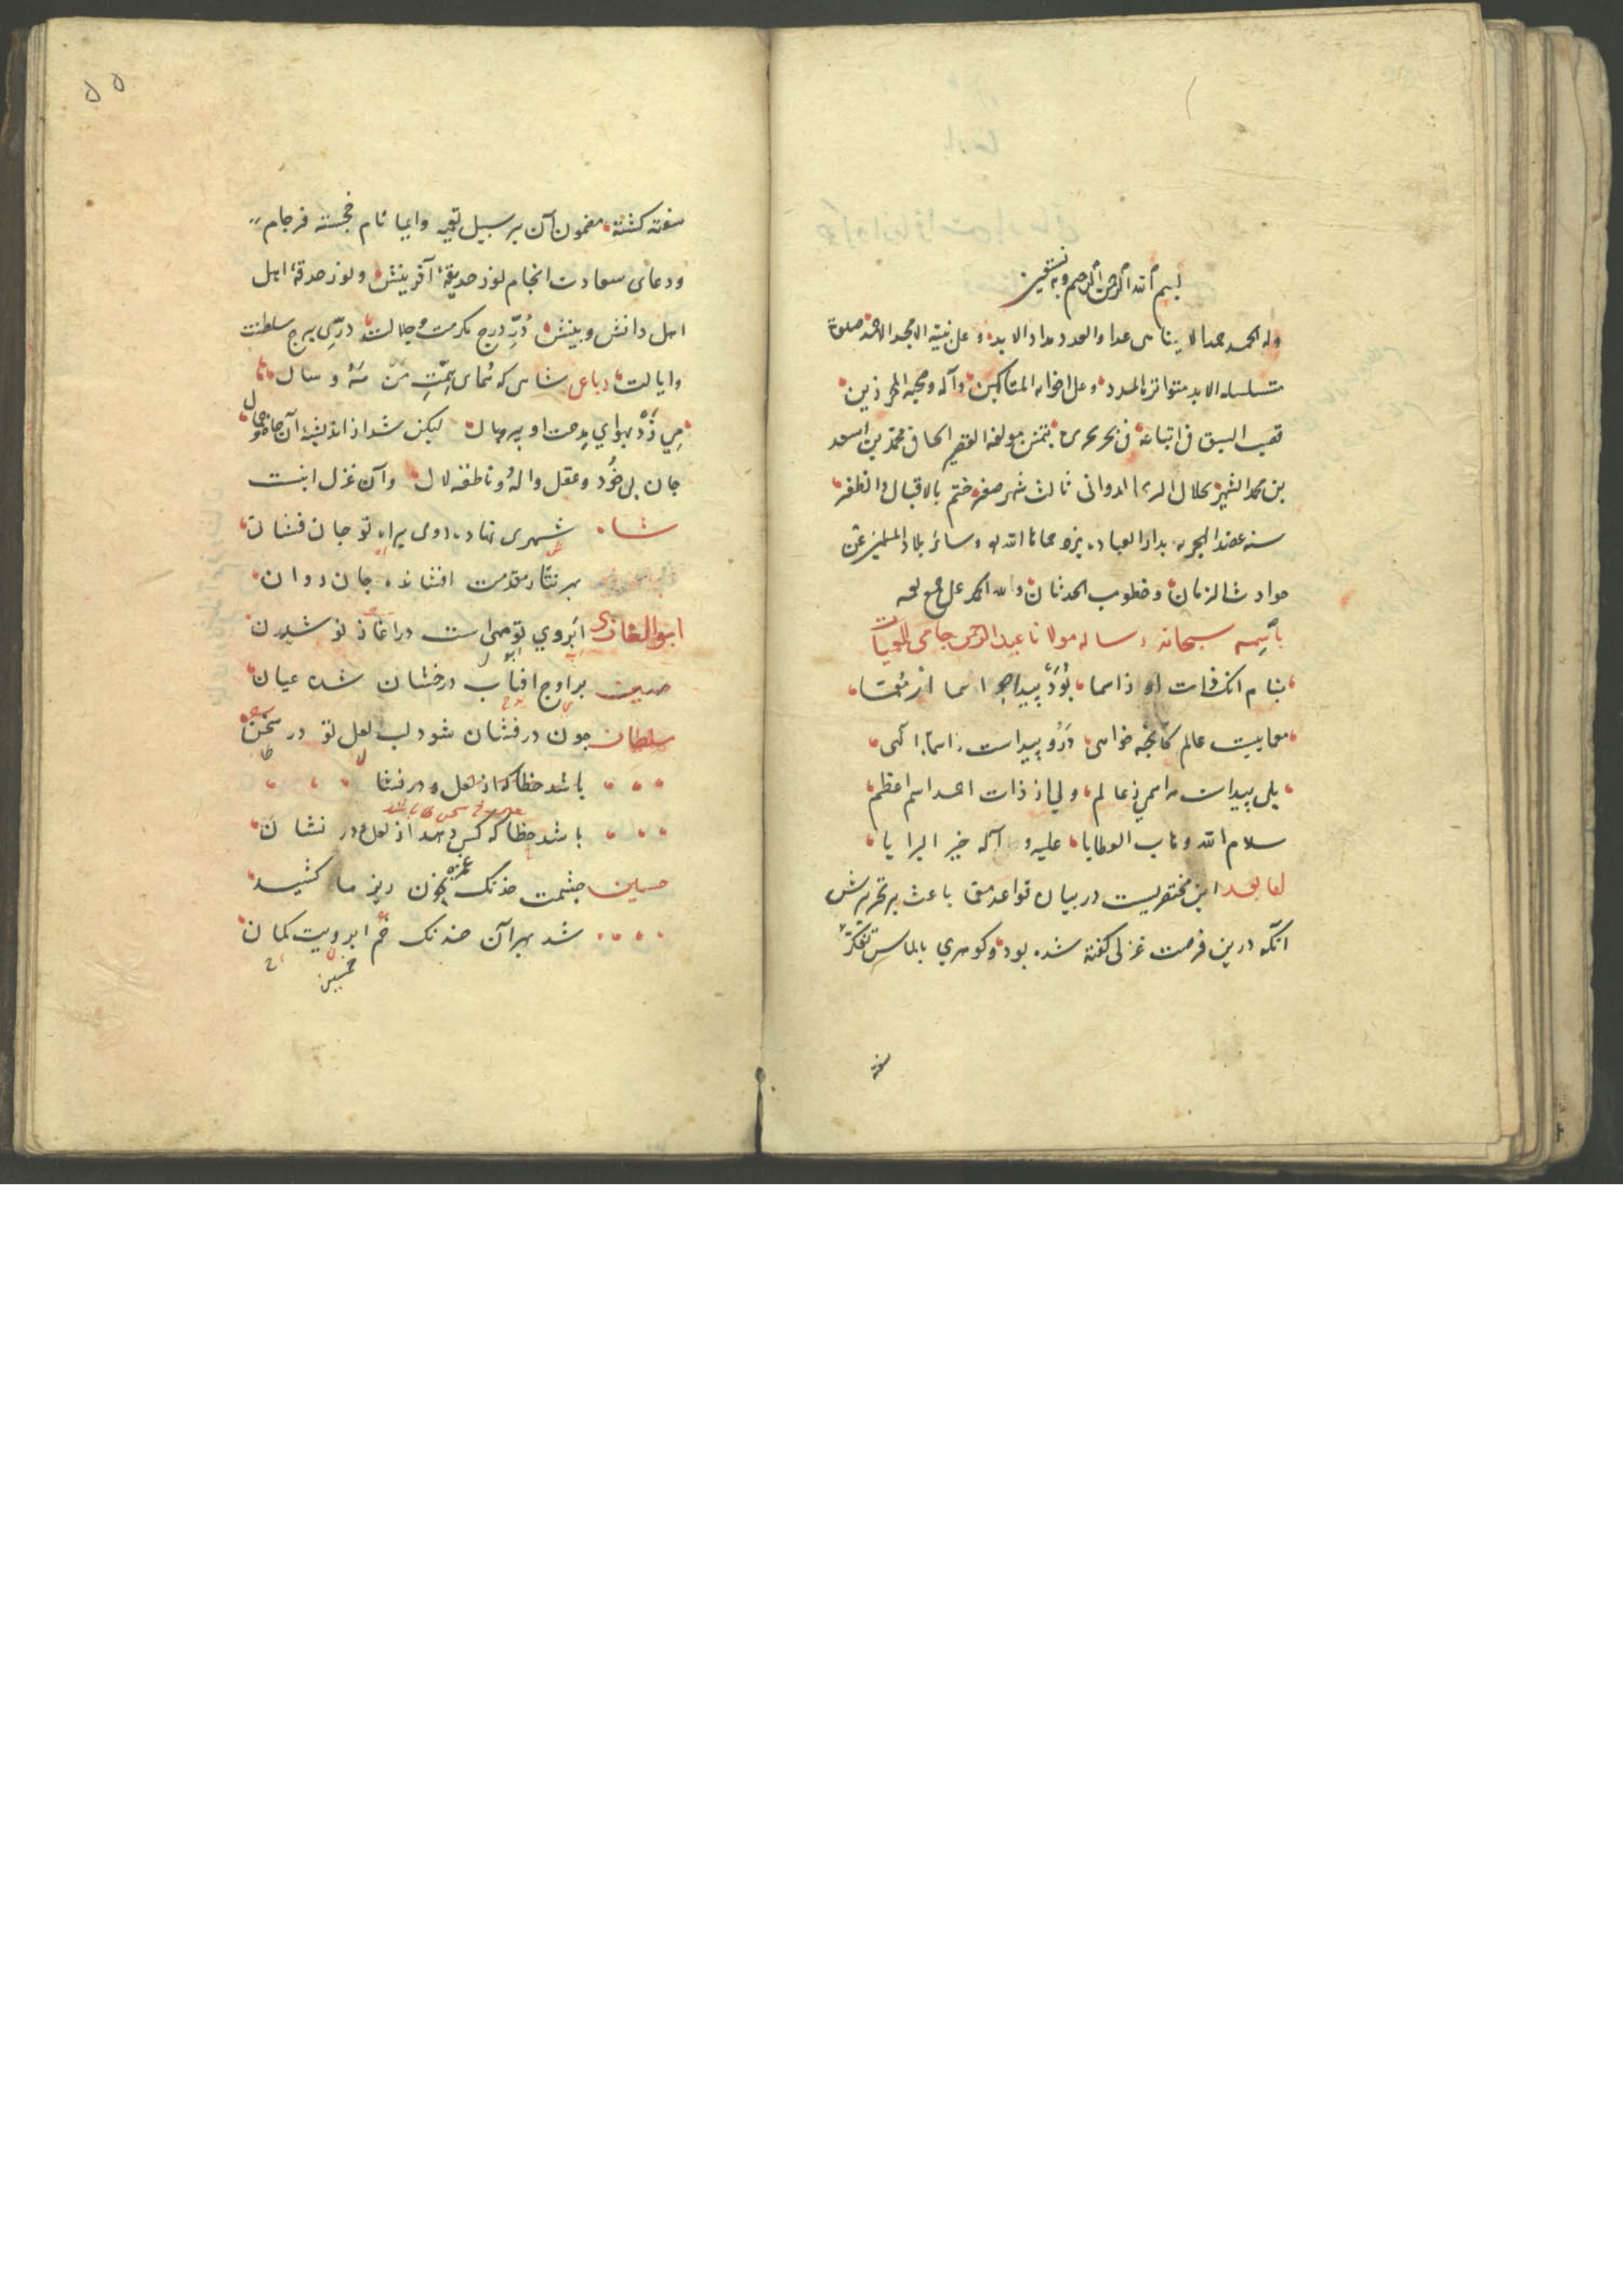 بسم الله الرحمن الرحيم وبه نستعين
وله الحمد حمدا لا يتناهى عدا والعدد مداد الابد وعلى نبيه الامجد الاحمد صلوة
متسلسلة الابد متواترة المدد وعلى اخوانه المتاكبين وآله وصحبه المحرزين
قصب السبق فى اتباعه فى بحر تحريره بتنميق مولفه الفقير الجانى محمد بن اسعد
بن محمد الشهير بجلال الدين الدوانى ثالث شهر صفر ختم بالاقبال والظفر
سنه الهجريه بدار العباده يزد حماها الله و سائر بلاد المسلمين عن
حوادث الزمان وخطوب الحدثان والله الحمد على جميع نعمه
باسمه سبحانه رساله مولانا عبد الرحمن جامى للمعميات
بنام آنک ذات او ز اسما بود پیدا چو اسما از معما
معماییست عالم کانچه خواهی درو پیداست ز اسماء الهی
بلی پیداست هر اسمی ز عالم ولی از ذات احمد اسم اعظم
سلام الله وهاب العطایا علیه و آله خیر البرایا
اما بعد این مختصریست در بیان قواعد معما باعث بر تحریرش
آنکه درین فرصت غزلی گفته شده بود و گوهری بالماس تفکر
سفته
۵۵
سفته گشته مضمون آن بر سبیل تعمیه و ایما نام خجسته فرجام
ودعای سعادت انجام نور حدیقهٔ آفرینش و نور حدقهٔ اهل
اهل دانش و بینش درّ درج مکرمت و جلالت درّی برج سلطنت
وایالت رباعی شاهی که همای همت من مه و سال
می زد بهوای مدحت او پر وبال لیکن شد از اندیشهٔ آن جاه و جلال
جان بی خود و عقل واله و ناطقه لال وآن غزل اینست
شاه شهری نهاده روی براه تو جان فشان
بهر نثار مقدمت افشانده جان روان
ابو الغازی ابروی تو مهی است در آغاز نو شدن
بر اوج افتاب درخشان شده عیان
سلطان چون درفشان شود لب لعل تو در سخن
باشد خطا که از لعل و در فشا
باشد خطا که کس دهد از لعل و در نشان
حسین چشمت خدنگ غمزه بخون ریز ما کشید
شد بهر آن خدنگ خم ابرویت کمان